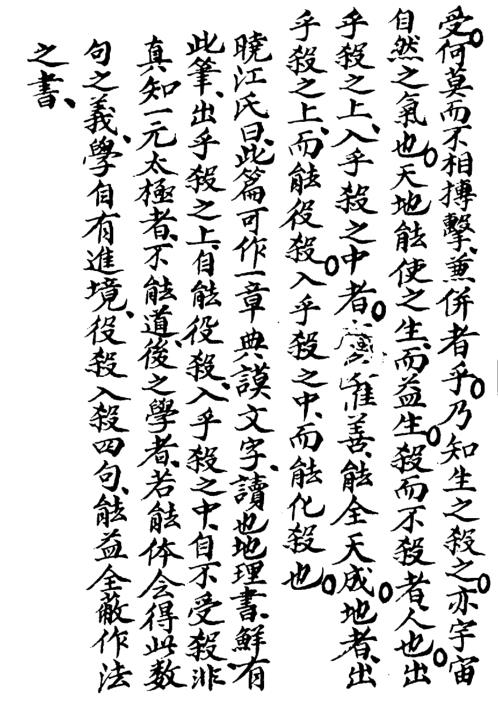 受何莫而不相摶擊、兼併者乎。乃知生之殺之。亦宇宙
自然之氣也。天地能使之生、而益生。殺而不殺者、人也。出
乎殺之上、入乎殺之中者。惟善、能全天成地者、出
乎殺之上、而能役殺。入乎殺之中、而能化殺也。
曉江氏曰、此篇可作一章典謨文字、讀也地理書、鮮有
此筆、出乎殺之上、自能役殺、入乎殺之中、自不受殺、非
真知一元太極者、不能道、後之學者、若能体会得此数
句之義、學自有進境、役殺入殺四句、能益全蔽作法
之書、